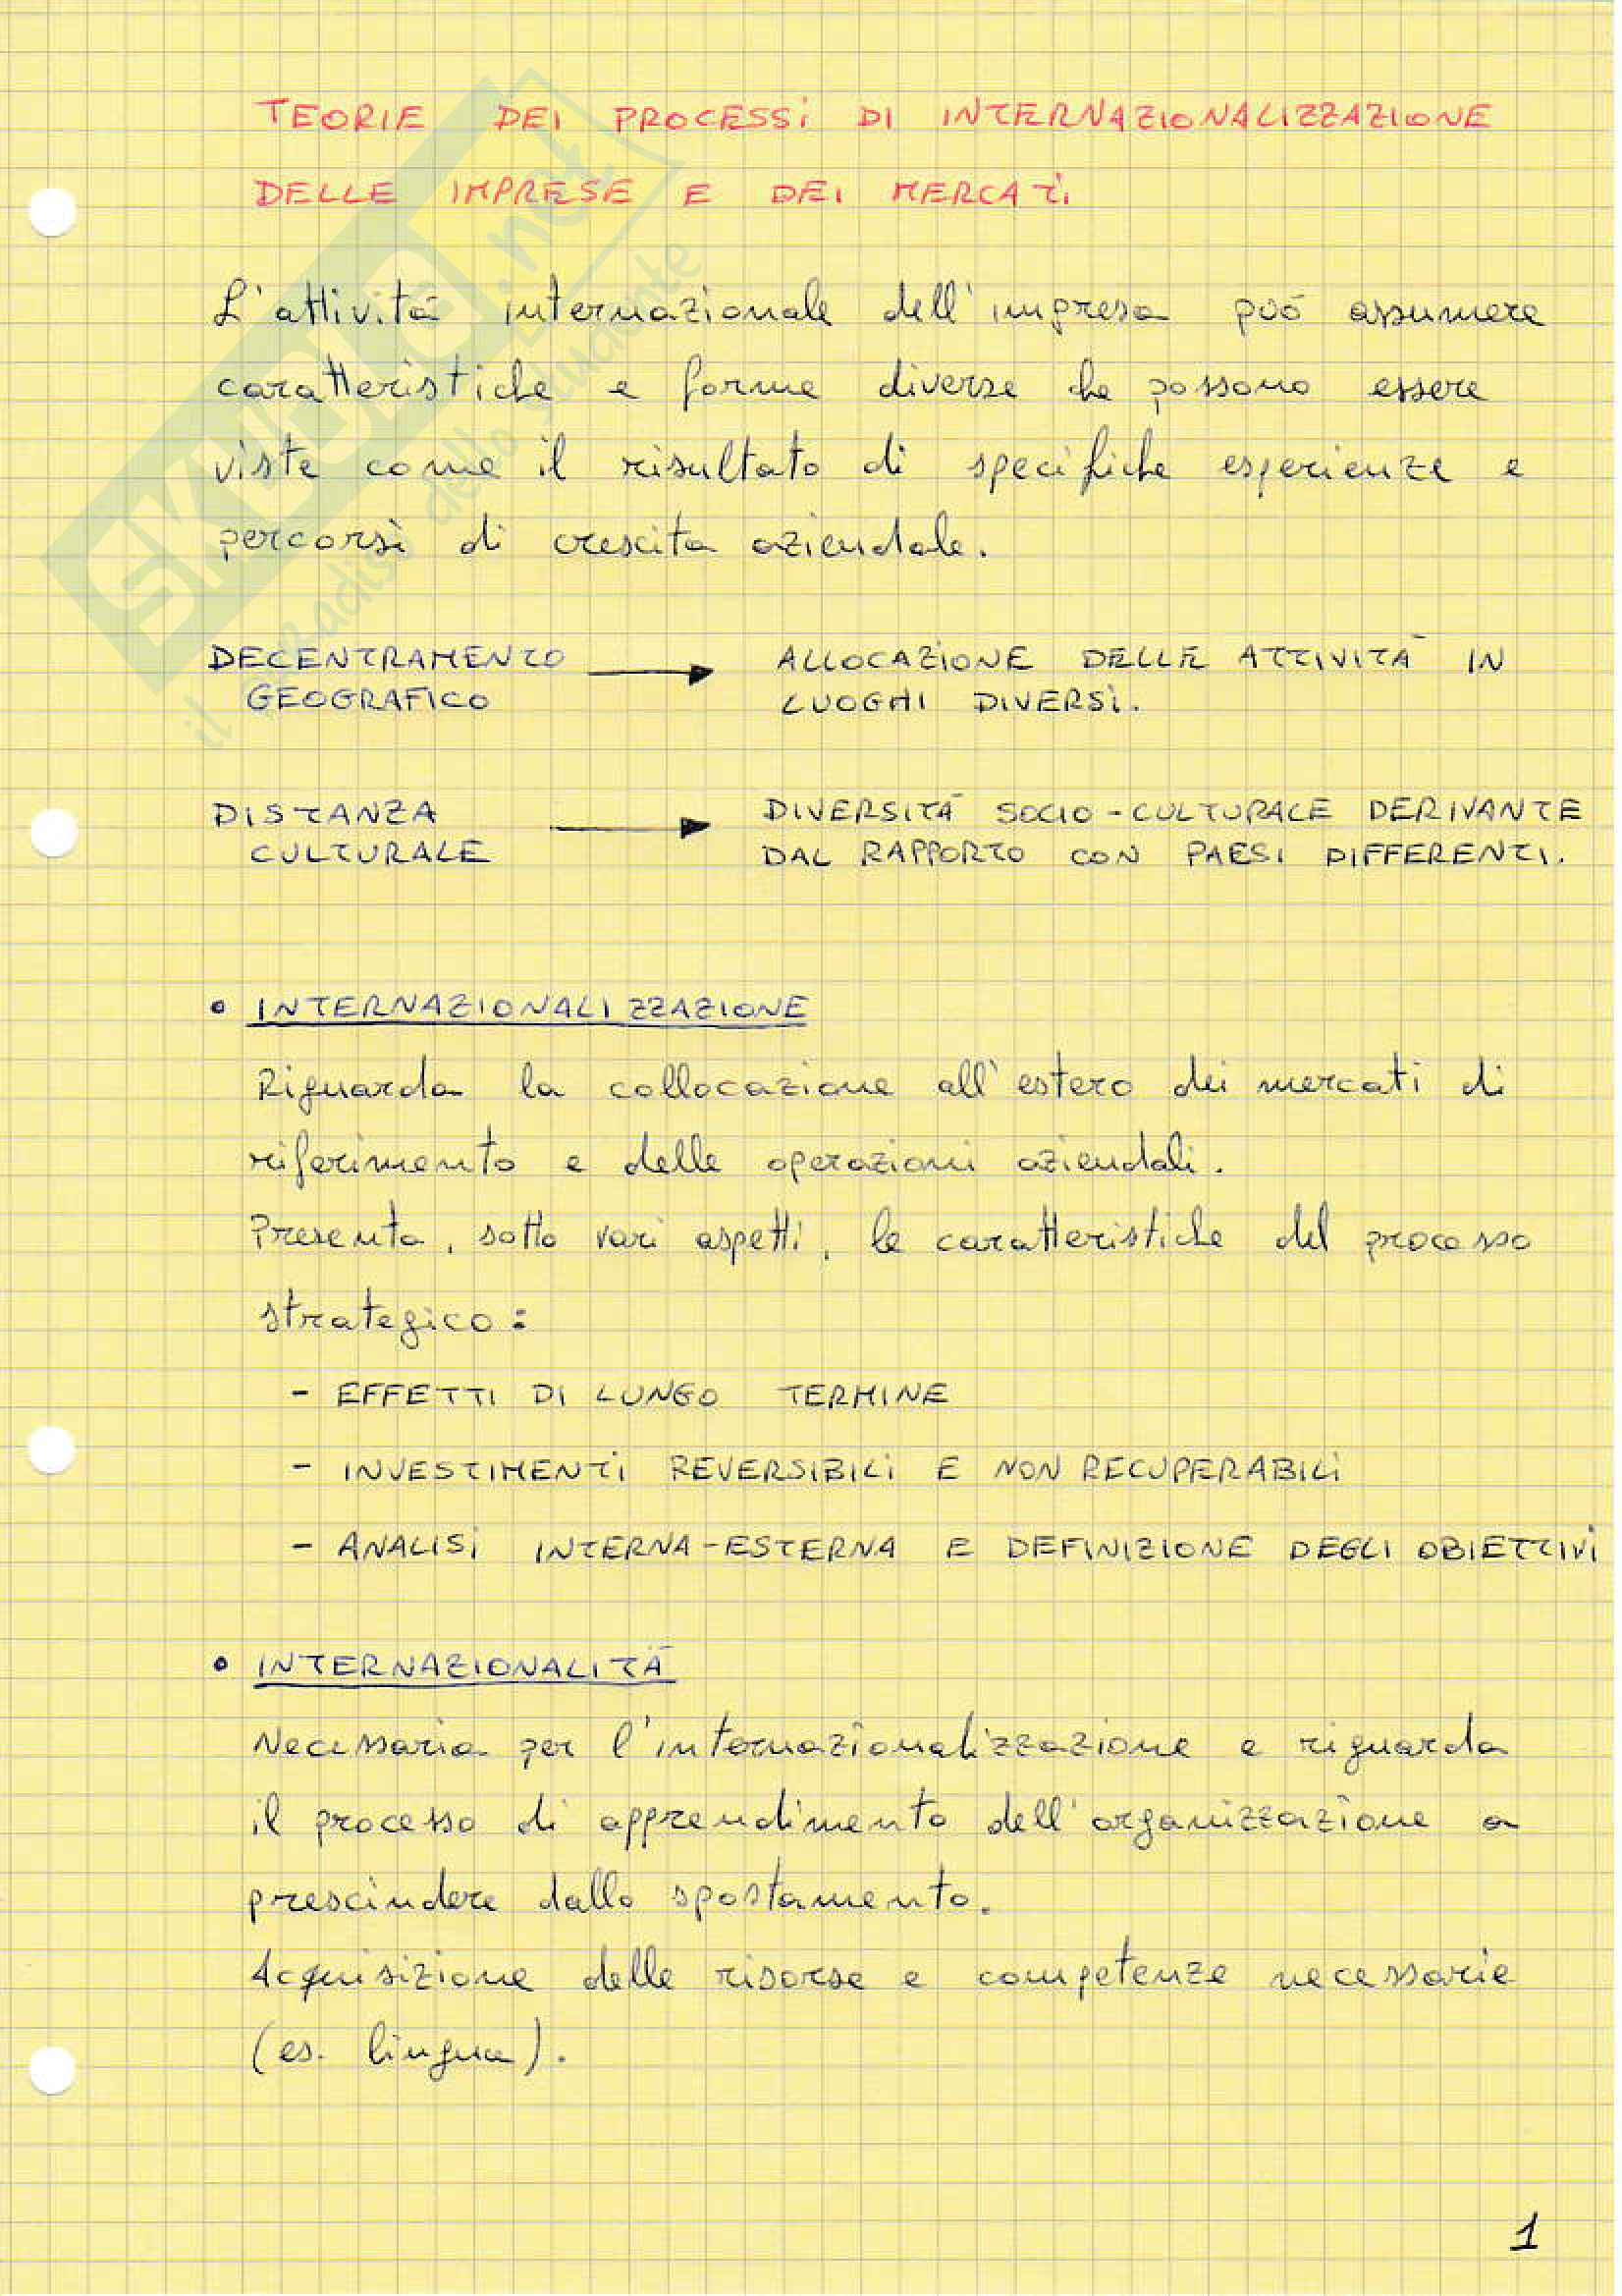 TEORIE DEI PROCESSI DI INTERNAZIONALIZZAZIONE
DELLE IMPRESE E DEI MERCATI
L'attività internazionale dell'impresa può assumere
caratteristiche e forme diverse che possono essere
viste come il risultato di specifiche esperienze e
percorsi di crescita aziendale.
DECENTRAMENTO
GEOGRAFICO
ALLOCAZIONE DELLE ATTIVITÀ IN
LUOGHI DIVERSI.
DISTANZA
CULTURALE
DIVERSITÀ SOCIO-CULTURALE DERIVANTE
DAL RAPPORTO CON PAESI DIFFERENTI.
• INTERNAZIONALIZZAZIONE
Riguarda la collocazione all'estero dei mercati di
riferimento e delle operazioni aziendali.
Presenta, sotto vari aspetti, le caratteristiche del processo
strategico:
- EFFETTI DI LUNGO TERMINE
- INVESTIMENTI REVERSIBILI E NON RECUPERABILI
- ANALISI INTERNA-ESTERNA E DEFINIZIONE DEGLI OBIETTIVI
• INTERNAZIONALITÀ
Necessaria per l'internazionalizzazione e riguarda
il processo di apprendimento dell'organizzazione a
prescindere dallo spostamento.
Acquisizione delle risorse e competenze necessarie
(es. lingua).
1
SKUOLA.net
il paradiso dello studente